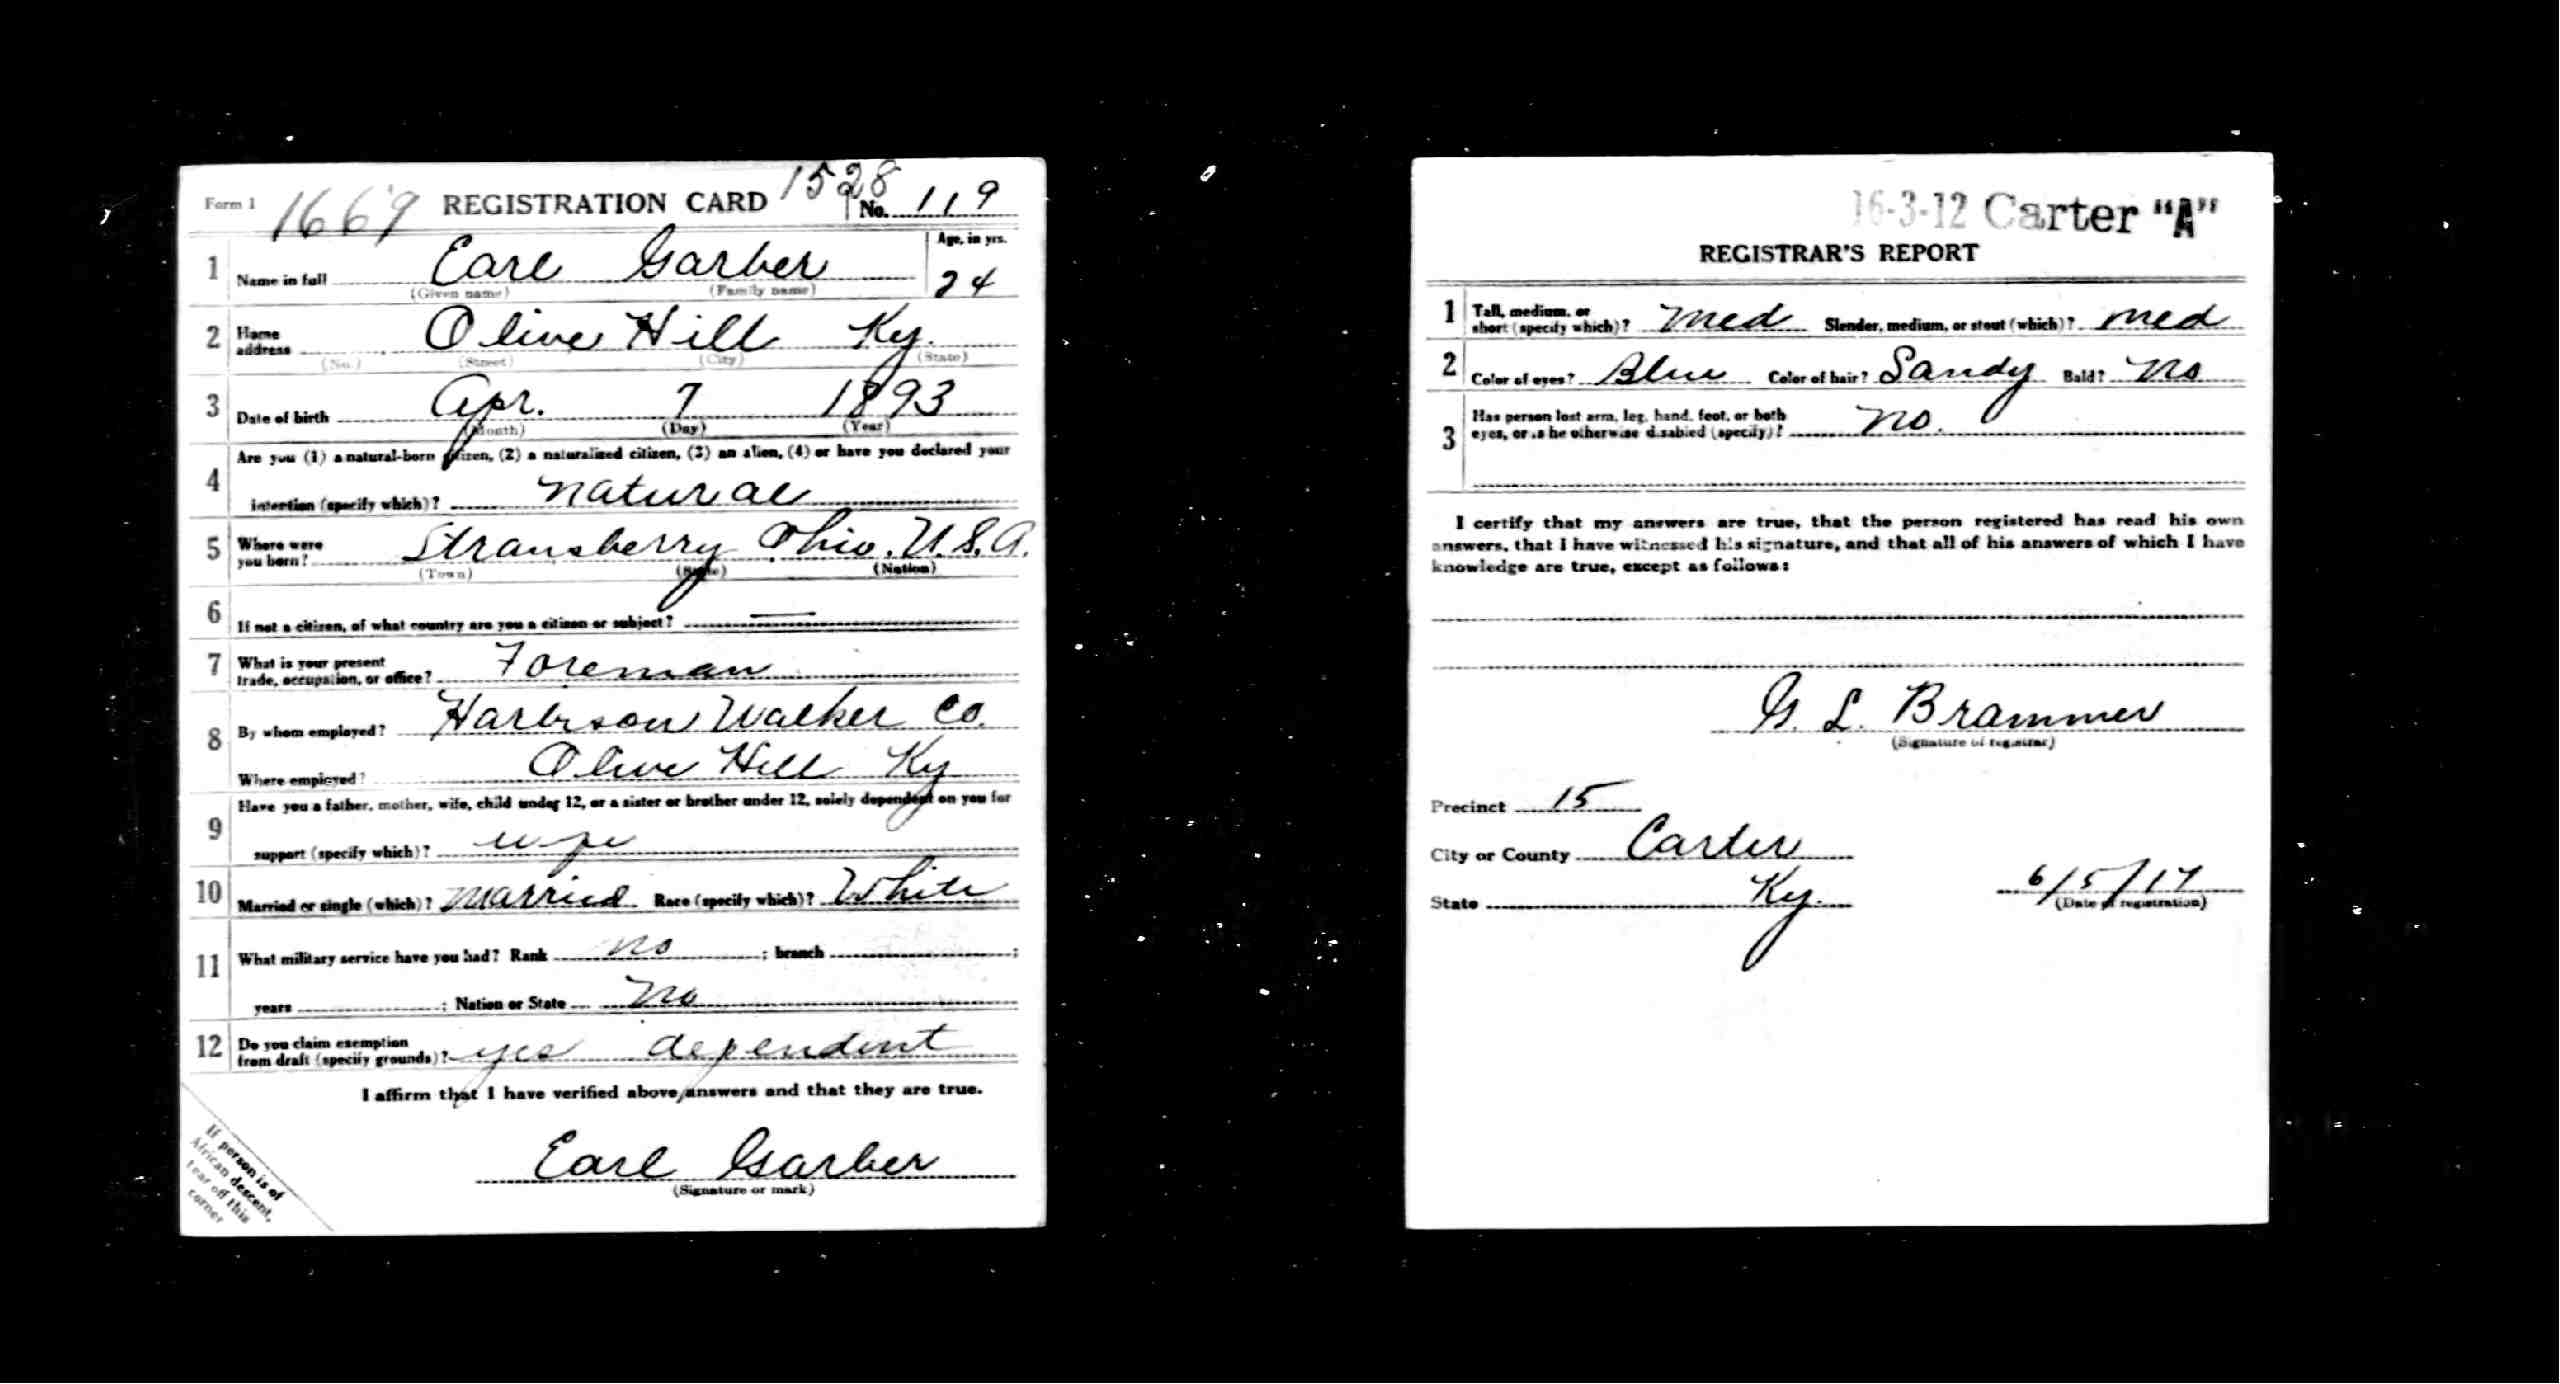 Form 1 1669 REGISTRATION CARD 1528 No. 119
1 Name in full Earl Garber Age, in yrs. 24
(Given name) (Family name)
2 Home address Olive Hill Ky.
(No.) (Street) (City) (State)
3 Date of birth Apr. 7 1893
(Month) (Day) (Year)
4 Are you (1) a natural-born citizen, (2) a naturalized citizen, (3) an alien, (4) or have you declared your
intention (specify which)? natural
5 Where were you born? Stransberry Ohio. U.S.A.
(Town) (State) (Nation)
6 If not a citizen, of what country are you a citizen or subject? —
7 What is your present trade, occupation, or office? Foreman
8 By whom employed? Harbison Walker Co.
Where employed? Olive Hill Ky
9 Have you a father, mother, wife, child under 12, or a sister or brother under 12, solely dependent on you for
support (specify which)? wife
10 Married or single (which)? Married Race (specify which)? White
11 What military service have you had? Rank no ; branch ;
years ; Nation or State no
12 Do you claim exemption from draft (specify grounds)? yes dependent
I affirm that I have verified above answers and that they are true.
Earl Garber
(Signature or mark)
If person is of
African descent,
tear off this
corner
16-3-12 Carter "A"
REGISTRAR'S REPORT
1 Tall, medium, or short (specify which)? Med Slender, medium, or stout (which)? Med
2 Color of eyes? Blue Color of hair? Sandy Bald? No
3 Has person lost arm, leg, hand, foot, or both
eyes, or is he otherwise disabled (specify)? No.
I certify that my answers are true, that the person registered has read his own
answers, that I have witnessed his signature, and that all of his answers of which I have
knowledge are true, except as follows:
G. L. Brammer
(Signature of registrar)
Precinct 15
City or County Carter
State Ky. 6/5/17
(Date of registration)